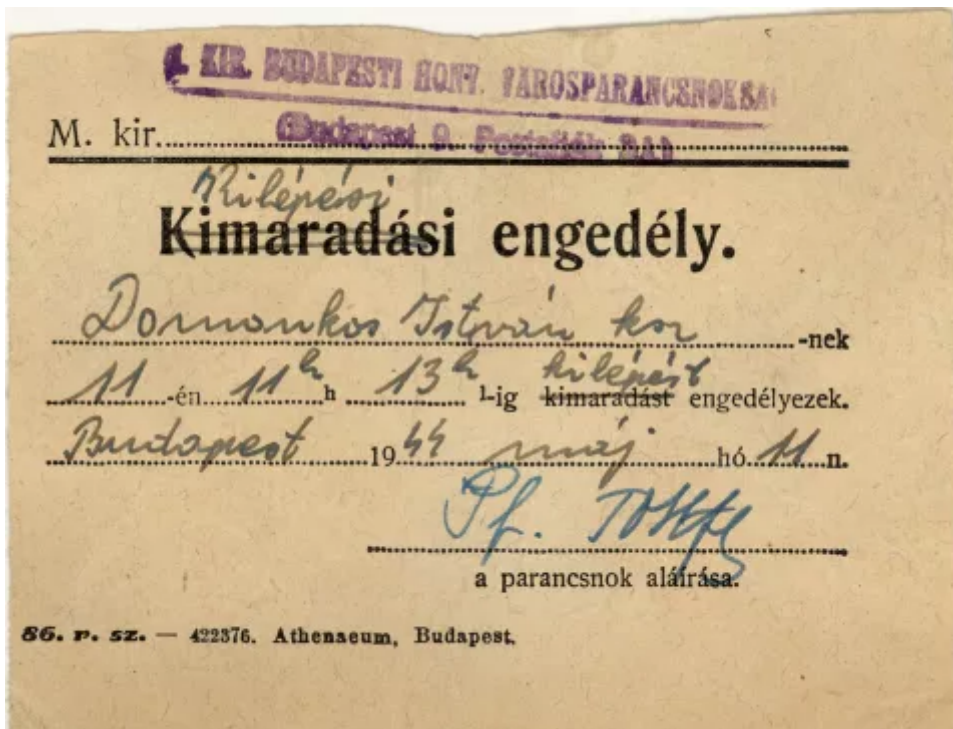 M. KIR. BUDAPESTI HONV. VÁROSPARANCSNOKSÁG
(Budapest 9. Postafiók 241)
M. kir.
Kilépési
Kimaradási engedély.
Domonkos István ksz -nek
11 -én 11h h 13h h-ig kilépést kimaradást engedélyezek.
Budapest 1944 máj hó 11 n.
Pf.
a parancsnok aláírása.
86. r. sz. — 422376. Athenaeum, Budapest.